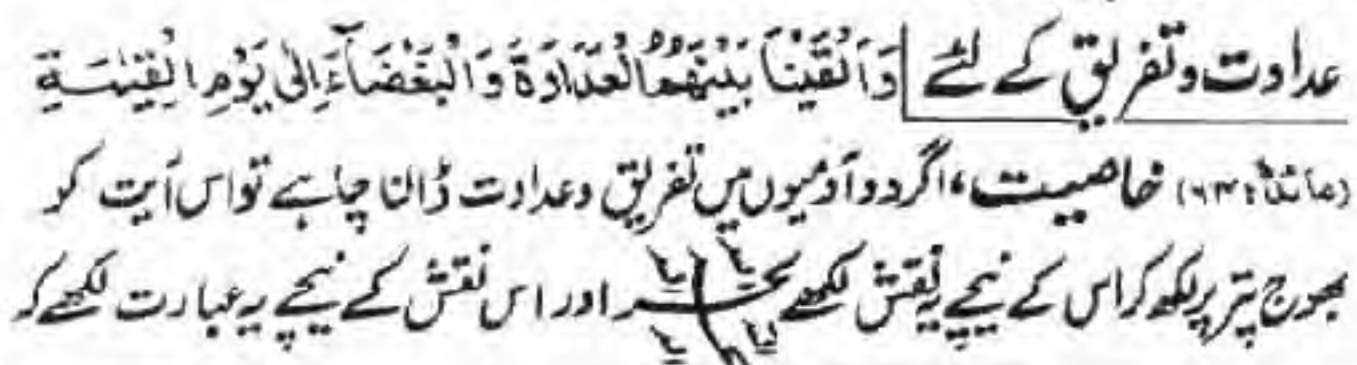 عداوت و تفریق کے لئے وَاَلْقَيْنَا بَيْنَهُمُ الْعَدَاوَةَ وَالْبَغْضَآءَ اِلٰى يَوْمِ الْقِيٰمَةِ
(مائدہ: ۶۴) خاصیت، اگر دو آدمیوں میں تفریق وعداوت ڈالنا چاہے تو اس آیت کو
بھوج پتر پر لکھ کر اس کے نیچے یہ نقش لکھے اور اس نقش کے نیچے یہ عبارت لکھے کہ